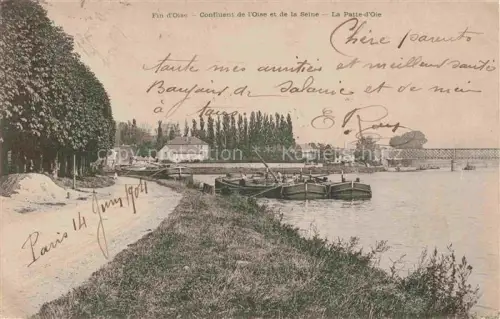 Fin d'Oise — Confluent de l'Oise et de la Seine — La Patte-d'Oie
Chère parents
toute mes amitiés et meilleur santés
Bonjours, de Salanie et de mein
à tous
Paris 14 Juin 1904
copyright